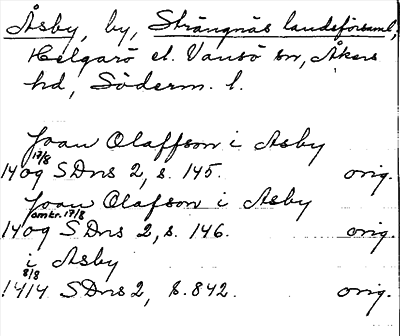 Åsby, by, Strängnäs landsförsaml.,
Helgarö el. Vansö sn, Åkers
hd, Söderm. l.
Joan Olaffson i Asby
17/8
1409 SDns 2, s. 145. orig.
Joan Olafson i Asby
omkr. 17/8
1409 SDns 2, s. 146. orig.
i Asby
8/8
1414 SDns 2, s. 842. orig.